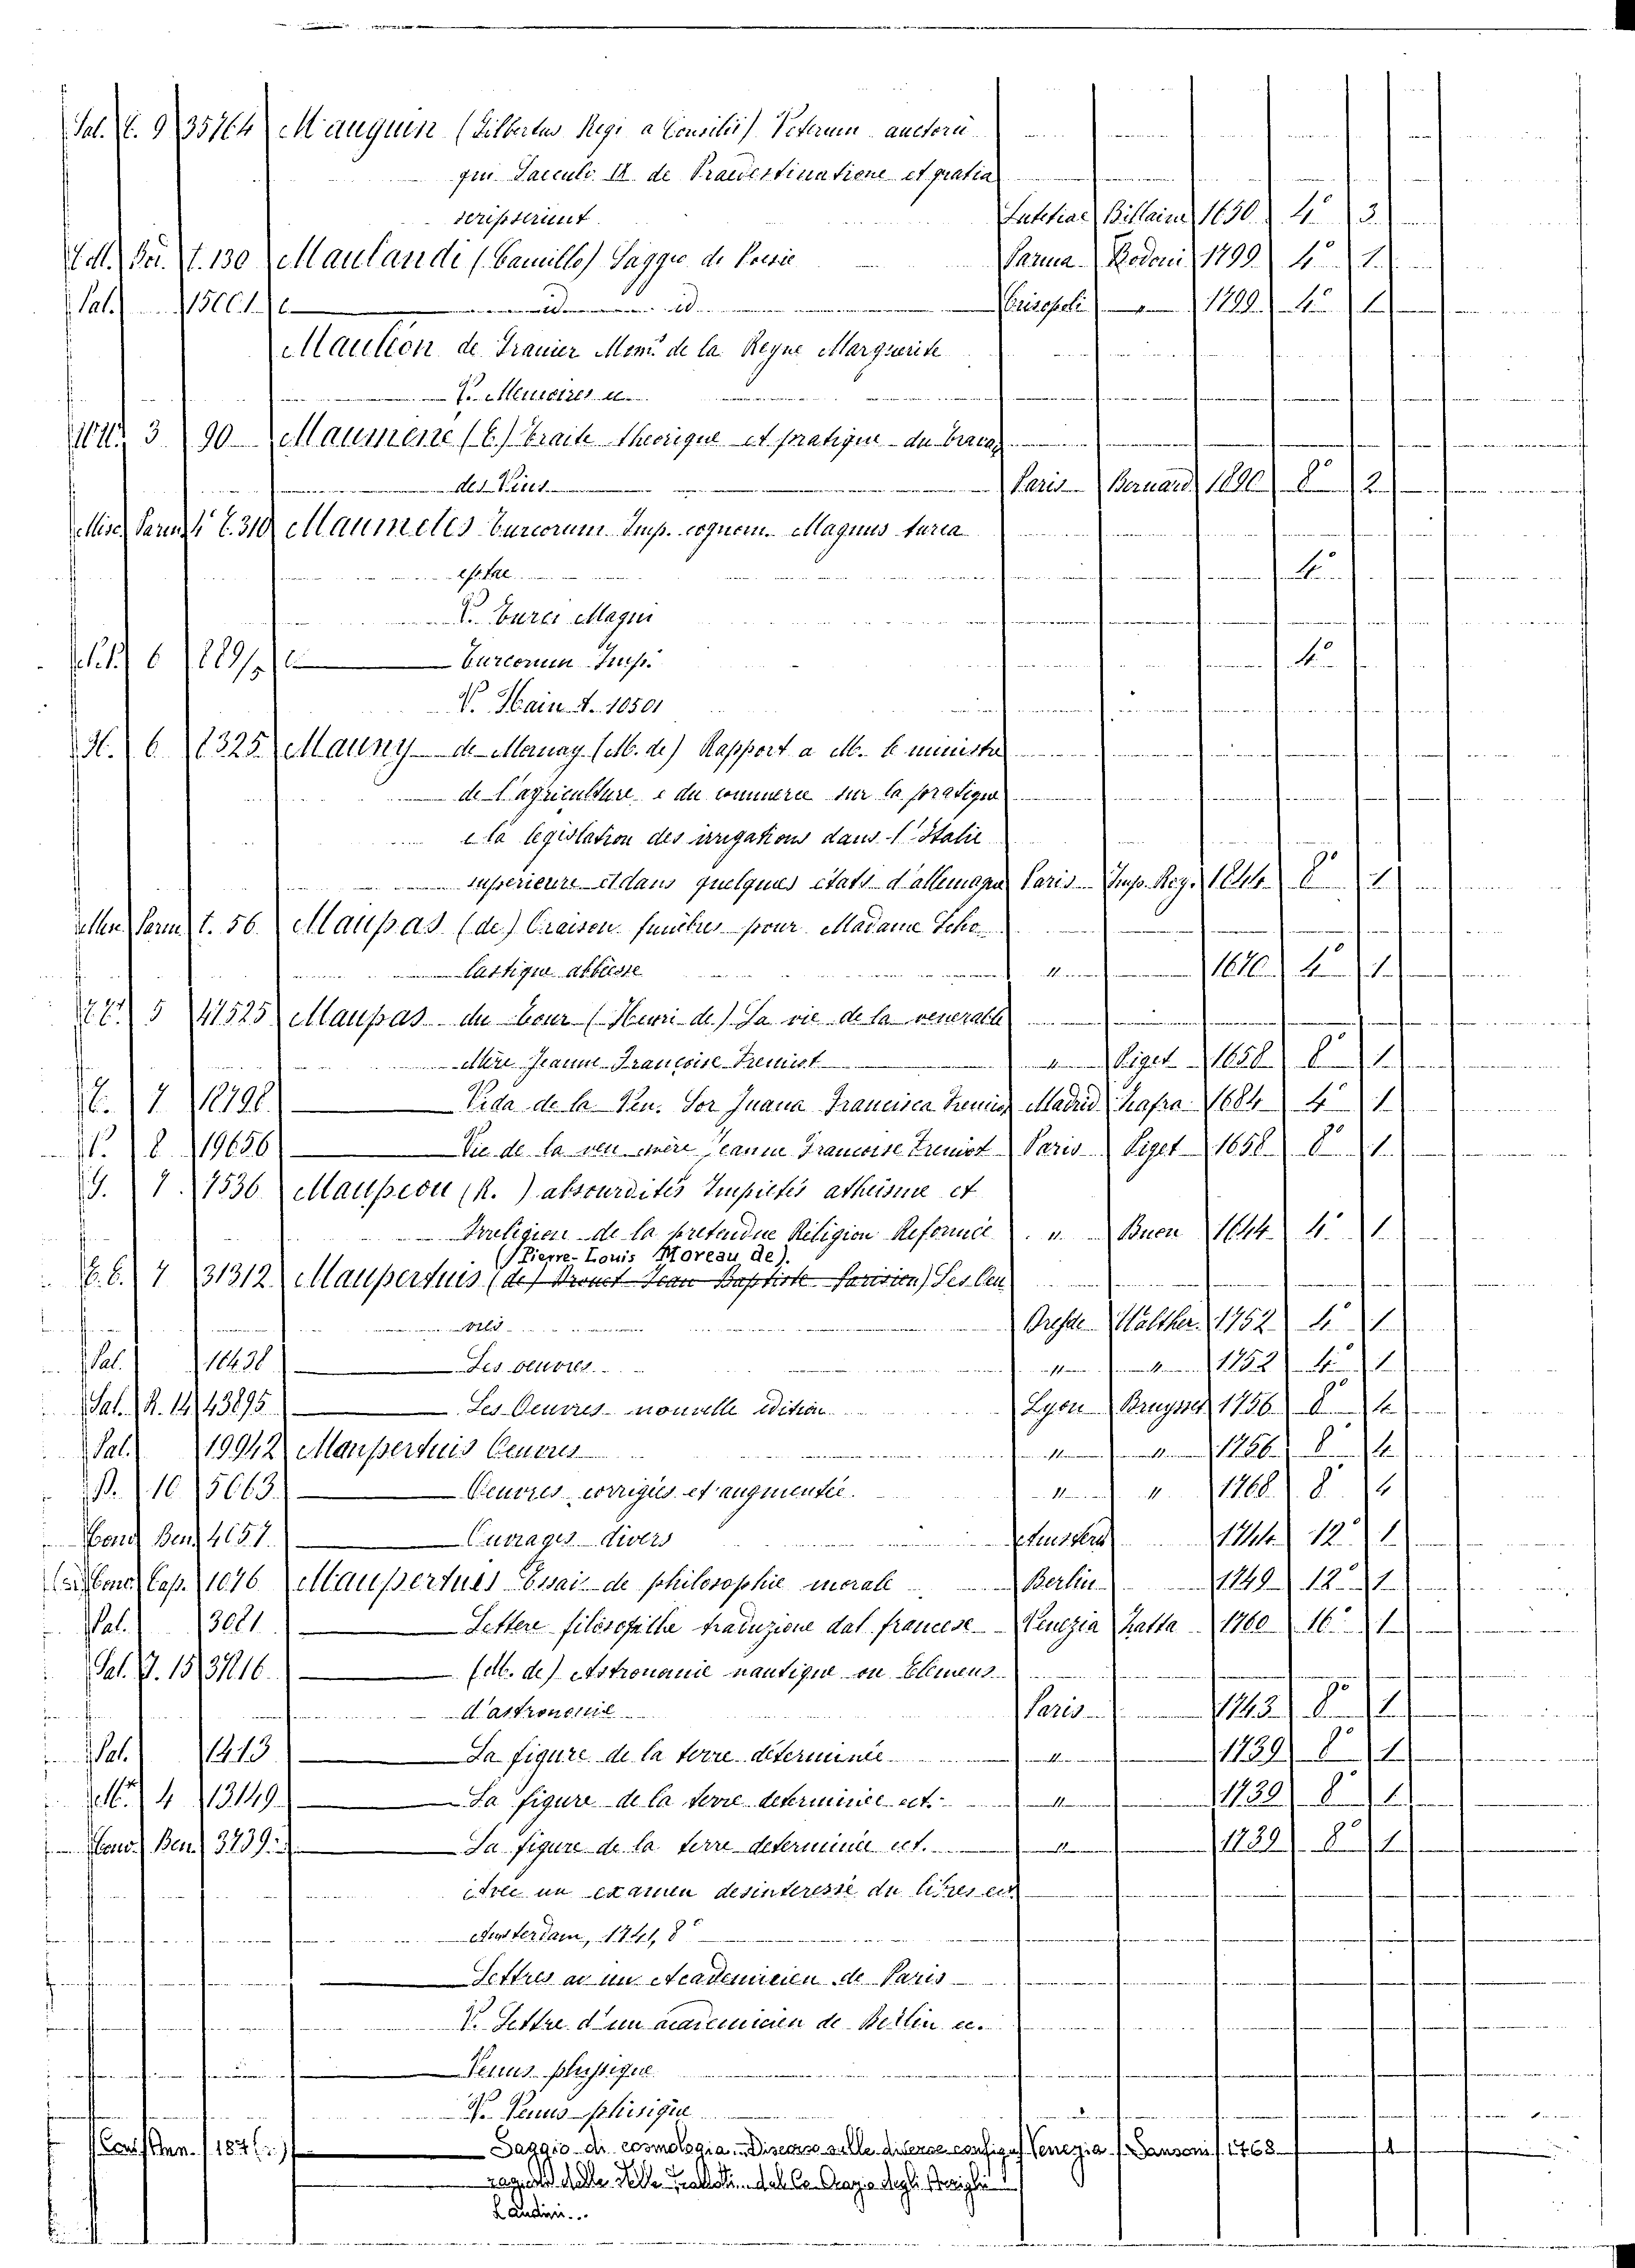 Sal. E. 9 35764 Mauguin (Gilbertus Regi a Consiliis) Veterum auctorū
qui Saeculo IX de Praedestinatione et gratia
scripserunt Lutetiae Billaine 1650 4° 3
t. 130 Maulandi (Camillo) Saggio di Poesie Parma Bodoni 1799 4° 1
Pal. id id Crisopoli " 1799 4° 1
Mauléon de Granier Mem. de la Reyne Marguerite
V. Memoires
3 90 Maumené (E.) Traité theorique et pratique du travail
des Vins Paris Bernard 1890 8° 2
Misc. Parm. 4° t. 310 Maumetes Turcorum Imp. cognom. Magnus turca
4°
V. Turci Magni
6 Turcorum Imp. 4°
V. Hain t. 10501
H. 6 1325 Mauny de Mornay (M. de) Rapport a M. le ministre
de l'agriculture e du commerce sur la pratique
e la legislation des irrigations dans l'Italie
superieure et dans quelques etats d'allemagne Paris Imp. Roy. 1844 8° 1
t. 56 Maupas (de) Oraison funebres pour Madame Scho
lastique abbesse " 4° 1
5 41525 Maupas du Tour (Henri de) La vie de la venerable
Mère Jeanne Françoise Fremiot " Piget 1658 8° 1
7 18798 Vida de la Ven. Sor Juana Francisca Fremiot Madrid Zafra 1684 4° 1
8 19656 Vie de la ven mère Jeanne Françoise Fremiot Paris Piget 1658 8° 1
G. 7 7536 Maupeou (R.) absourdités Impietés atheisme et
Irreligion de la pretendue Réligion Reformée " Buon 1644 4° 1
(Pierre-Louis Moreau de).
7 31312 Maupertuis (de) Drouet Jean Baptiste Parisien) Les Oeu
vres Dresde Walther 1752 4° 1
Pal. 16438 Les oeuvres " " 1752 4° 1
Sal. R. 14 43895 Les Oeuvres nouvelle edition Lyon Bruyset 1756 8° 4
Pal. 19942 Maupertuis Oeuvres " " 1756 8° 4
B. 10 5663 Oeuvres corrigées et augmentée. " " 1768 8° 4
Ben. 4657 Ouvrages divers Amsterd 1744 12° 1
Cap. 1076 Maupertuis Essai de philosophie morale Berlin 1749 12° 1
Pal. 3081 Lettere filosofiche traduzione dal francese Venezia Zatta 1760 16° 1
Sal. 15 37816 (M. de) Astronomie nautique ou Elemens
d'astronomie Paris 1743 8° 1
Pal. 1413 La figure de la terre determinée " 1739 8° 1
4 13149 La figure de la terre determinée ect. " 1739 8° 1
Ben. 3739 La figure de la terre determinée ect. " 1739 8° 1
avec un examen desinteressé du livres ect
Amsterdam, 1741, 8°
Lettres a un Academicien de Paris
V. Lettre d'un academicien de Berlin ec.
Venus physique
V. Venus phisique
Saggio di cosmologia. Discorso sulle diverse configu Venezia Sansoni 1768 1
razioni delle Stelle
Landini...